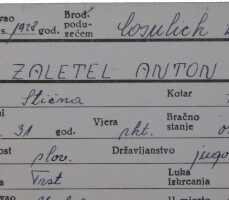 s. 1928 god. Brod. podu- zećem Cosulich
ZALETEL ANTON
Stična Kotar
31 god. Vjera rkt. Bračno stanje
ost slov. Državljanstvo jugo
Trst Luka Iskrcanja